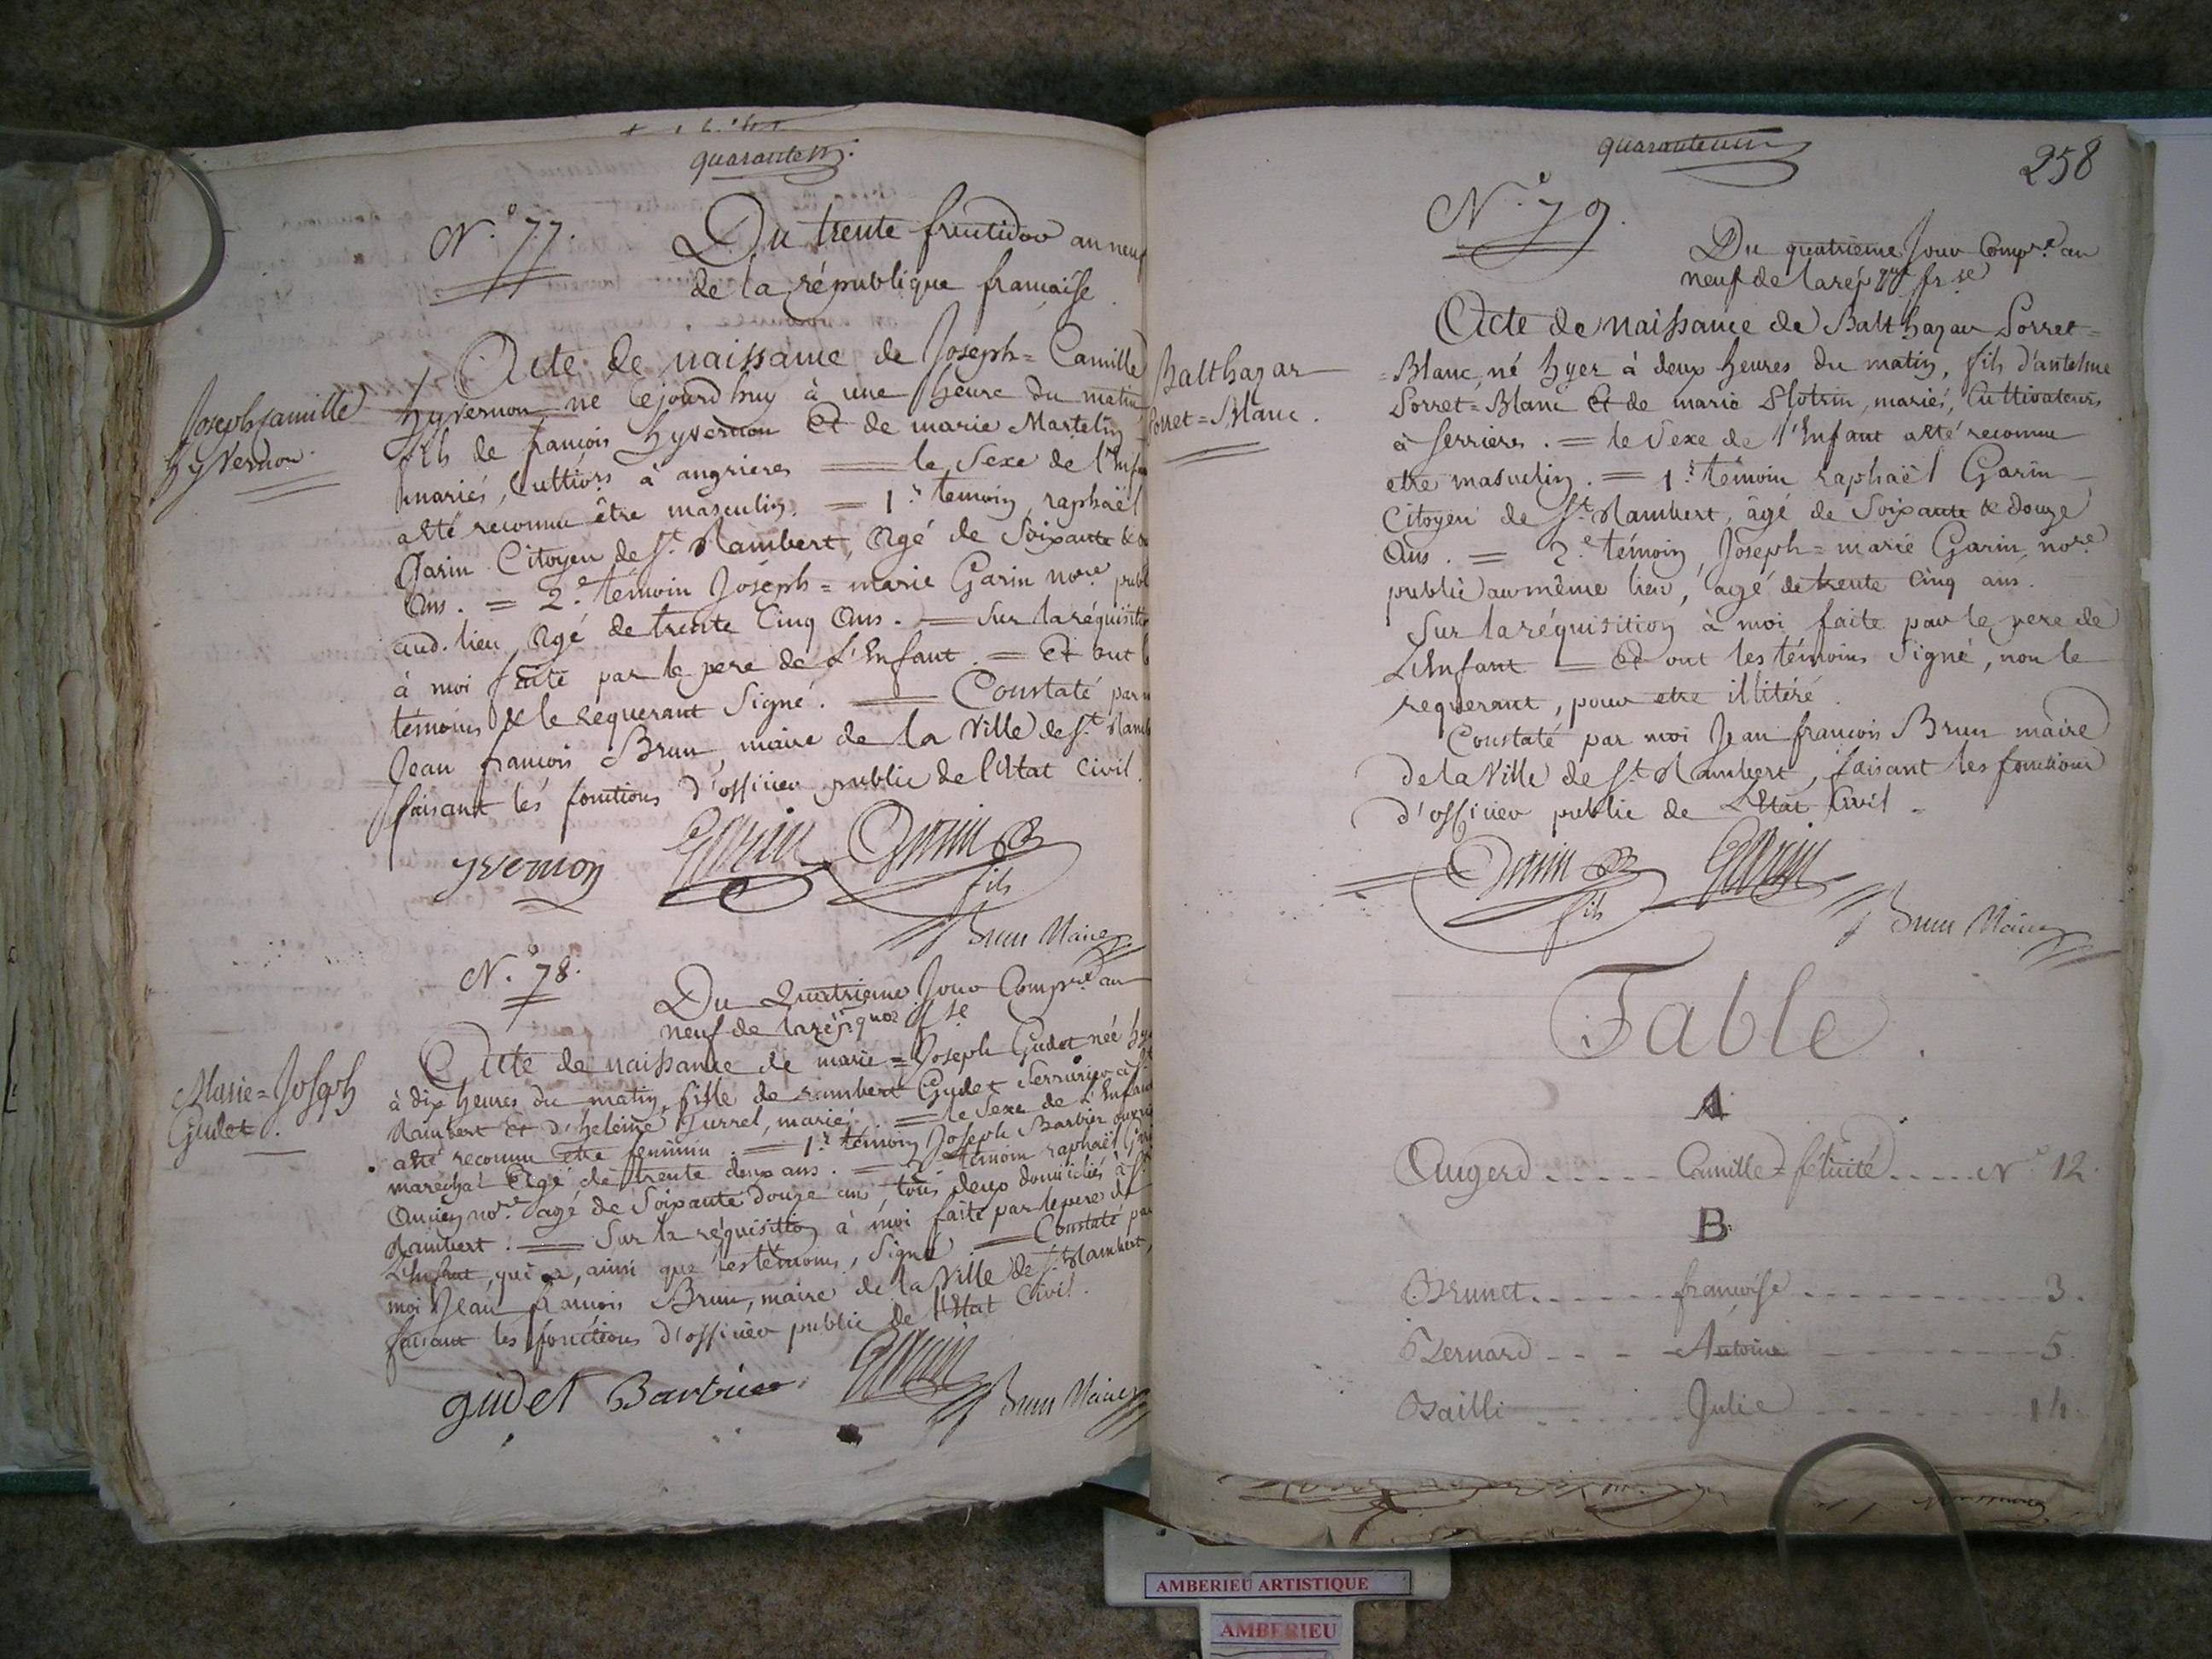 quarante
N.º 77.
Du trente fructidor an neuf
de la république française
Joseph Camille
hyvernon
Acte de naissance de Joseph = Camille
hyvernon né cejourdhuy à une heure du matin
fils de françois hyvernon Et de marie Martelin
mariés, Cultiors à angrieres = le Sexe de l'Enfa
a été reconnu être masculin. = 1.r temoin raphaël
Garin Citoyen de St. Rambert, Agé de Soixante &
Ans. = 2.e témoin Joseph = marie Garin nore publ
aud. lieu Agé de trente Cinq Ans. = Sur la réquisition
à moi faite par le pere de L'Enfant. = Et ont
témoins & le requerant Signé. = Constaté par
Jean françois Brun, maire de la Ville de St. Ramb
faisant les fonctions d'officier public de l'Etat Civil.
yvernon Garin Garin
fils
Brun Maire
N.º 78.
Du Quatrieme Jour Compre. an
neuf de la répque. fse
Marie = Joseph
Gudet.
Acte de naissance de marie = Joseph Gudet née hy
à dix heures du matin, fille de rambert Gudet Serrurier à St
Rambert Et d'heleine Jurrel, mariés. = le Sexe de L'Enfant
a été reconnu Etre feminin. = 1.r témoin Joseph Barbier ouvri
maréchal Agé de trente deux ans. = témoin raphaël Gari
Ancien nore. agé de Soixante douze ans, tous deux domiciliés à St.
Rambert. = Sur la réquisition à moi faite par le pere de
L'Enfant, qui a, ainsi que les témoins, Signé. = Constaté par
moi Jean françois Brun, maire de la Ville de St. Rambert,
faisant les fonctions d'officier public de l'Etat Civil.
gudet Barbier Garin
Brun Maire
quaranteun
258
N.º 79.
Du quatrieme Jour Compre. an
neuf de la rép que frse
Balthazar
Porret = Blanc.
Acte de naissance de Balthazar Porret =
= Blanc, né hyer à deux heures du matin, fils d'antelme
Porret = Blanc Et de marie, mariés, Cultivateurs
à Serrieres. = le Sexe de l'Enfant a été reconnu
etre masculin. = 1.r témoin raphaël Garin
Citoyen de St. Rambert, âgé de Soixante & douze
Ans. = 2.e témoin, Joseph = marie Garin, nore.
public au même lieu, agé de trente Cinq ans.
Sur la réquisition à moi faite par le pere de
L'Enfant = Et ont les témoins Signé, non le
requerant, pour etre illitéré.
Constaté par moi Jean françois Brun maire
de la Ville de St. Rambert, faisant les fonctions
d'officier public de L'Etat Civil =
Garin Garin
fils
Brun Maire
Table.
A
Augerd Camille = félicité N.º 12.
B.
Brunet françoise 3.
Bernard Antoine 5.
Bailli Julie 14.
AMBERIEU ARTISTIQUE
AMBERIEU